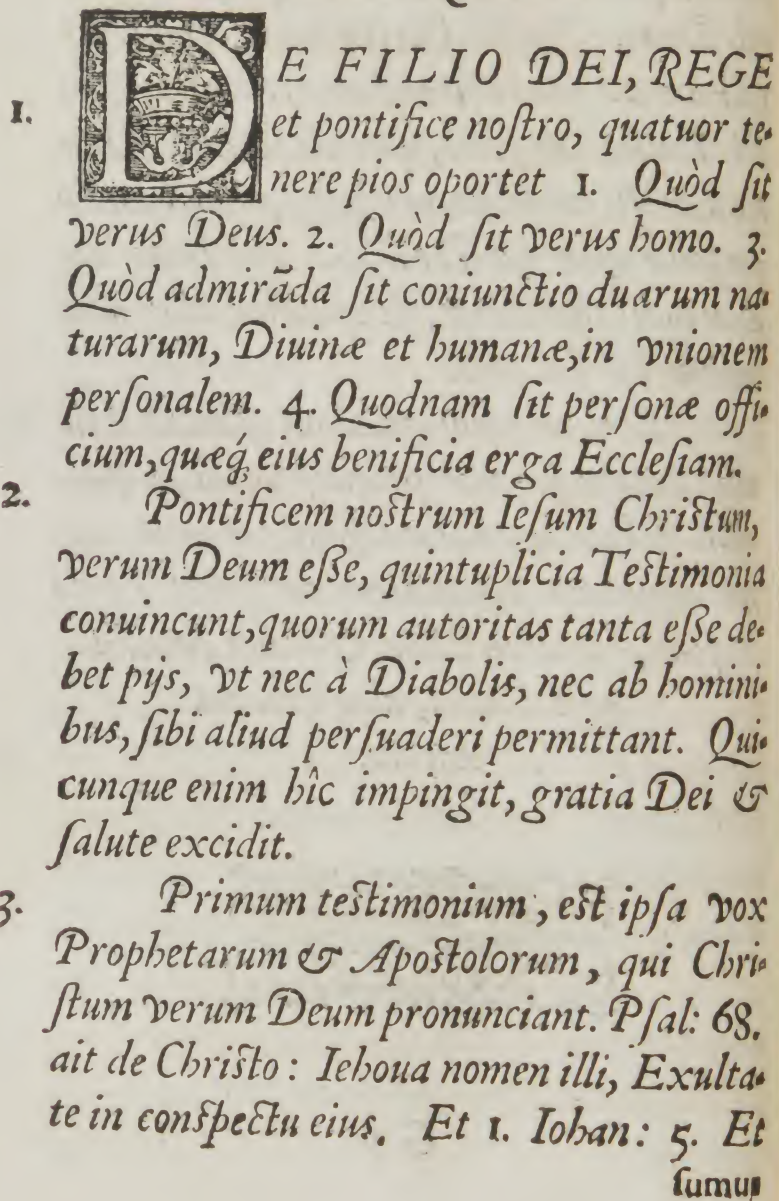 DE FILIO DEI, REGE
1. et pontifice noſtro, quatuor te-
nere pios oportet 1. Quòd ſit
verus Deus. 2. Quòd ſit verus homo. 3.
Quòd admirãda ſit coniunctio duarum na-
turarum, Diuinæ et humanæ, in vnionem
perſonalem. 4. Quodnam ſit perſonæ offi-
cium, quæq́; eius benificia erga Eccleſiam.
2. Pontificem noſtrum Ieſum Chriſtum,
verum Deum eſſe, quintuplicia Teſtimonia
conuincunt, quorum autoritas tanta eſſe de-
bet pijs, vt nec à Diabolis, nec ab homini-
bus, ſibi aliud perſuaderi permittant. Qui-
cunque enim hîc impingit, gratia Dei &
ſalute excidit.
3. Primum teſtimonium, eſt ipſa vox
Prophetarum & Apoſtolorum, qui Chri-
ſtum verum Deum pronunciant. Pſal: 68.
ait de Chriſto: Iehoua nomen illi, Exulta-
te in conſpectu eius. Et 1. Iohan: 5. Et
ſumus